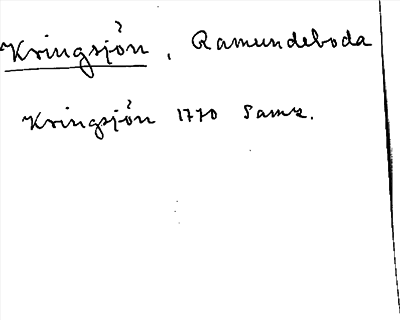 Kringsjön, Ramundeboda
Kringsjön 1770 Samz.